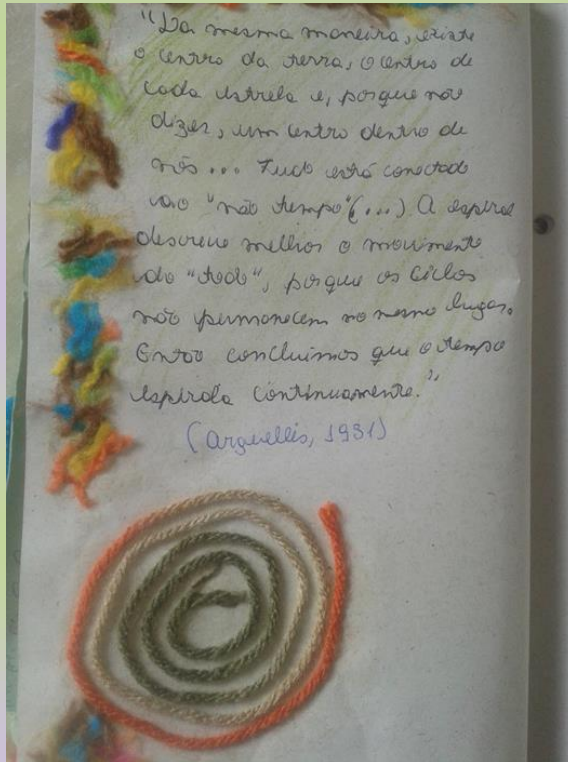 "Da mesma maneira, existe
o centro da terra, o centro de
cada estrela e, porque não
dizer, um centro dentro de
nós... Tudo está conectado
ao "não tempo"(...) A espiral
descreve melhor o movimento
do "todo", porque os ciclos
não permanecem no mesmo lugar.
Então concluimos que o tempo
espirala continuamente."
(Arguellis, 1931)